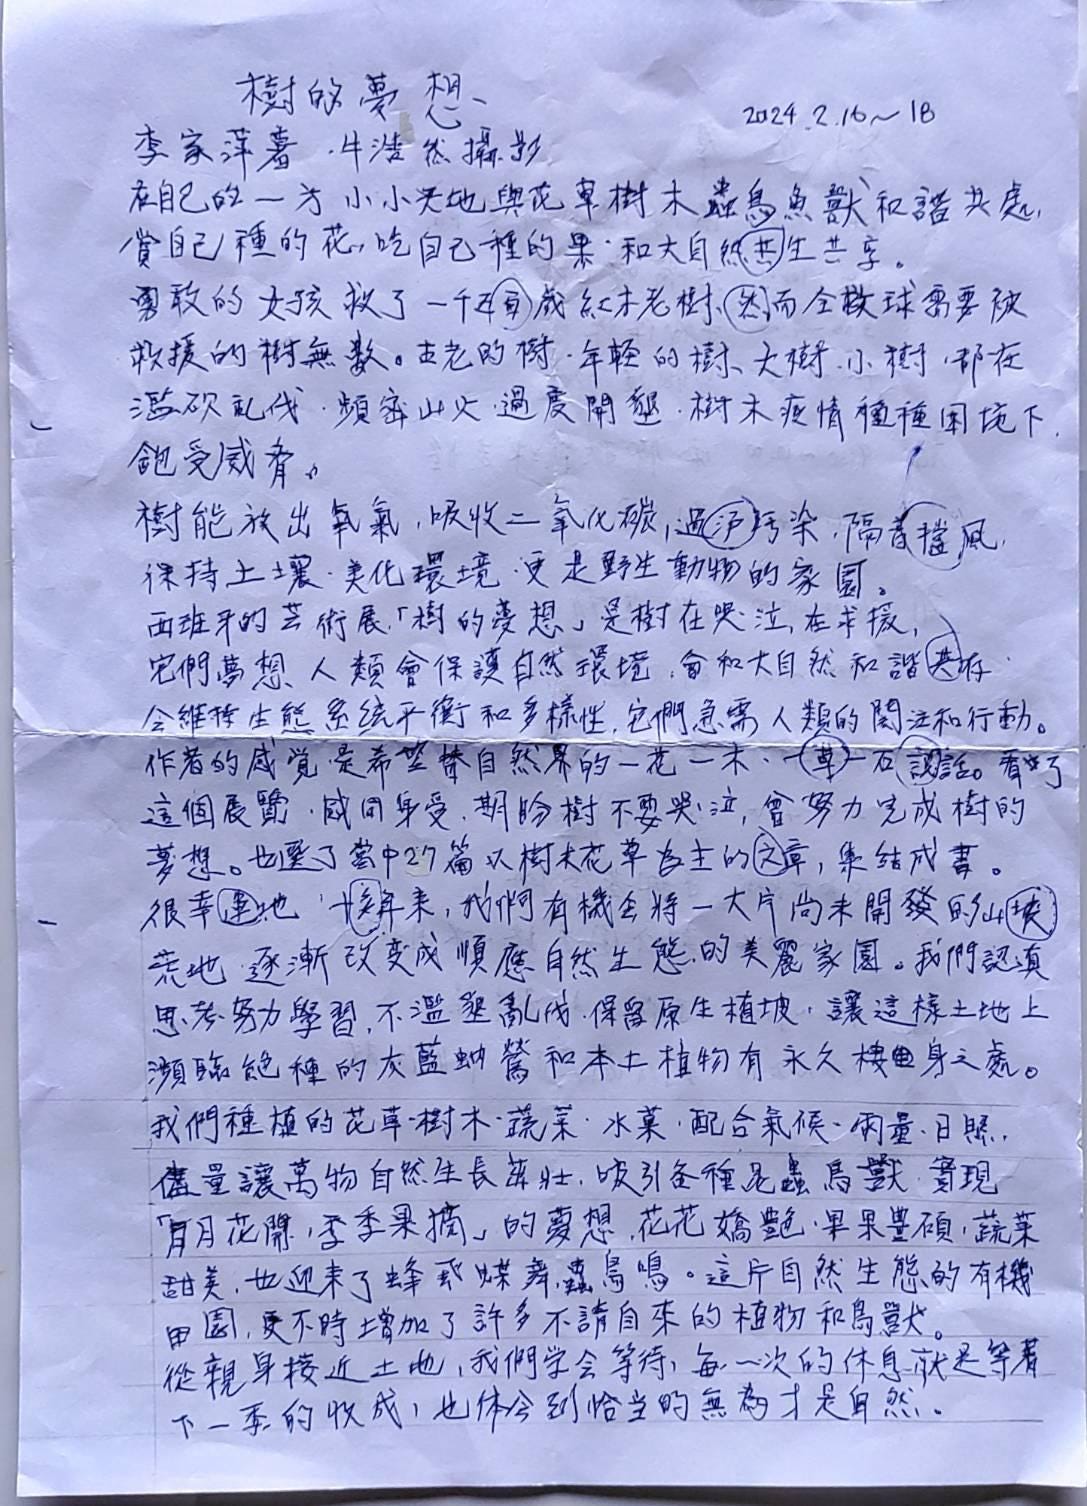 樹的夢想
2024.2.16~18
李家萍著·牛浩然攝影
在自己的一方小小天地與花草樹木蟲鳥魚獸和諧共處,
賞自己種的花,吃自己種的果·和大自然共生共享。
勇敢的女孩救了一千五百歲紅木老樹,然而全球需要被
救援的樹無數。古老的樹·年輕的樹、大樹·小樹·都在
濫砍乱伐·頻密山火·過度開墾·樹木疫情種種困境下,
飽受威脅。
樹能放出氧氣,吸收二氧化碳,過污染,隔音擋風,
保持土壤·美化環境·更是野生動物的家園。
西班牙的芸術展「樹的夢想」是樹在哭泣,在求援,
它們夢想人類會保護自然環境,會和大自然和諧共存·
会維持生態系統平衡和多樣性,它們急需人類的関注和行動。
作者的感覚是希望替自然界的一花一木·一草一石說話。看了
這個展覽·感同身受,期盼樹不要哭泣,會努力完成樹的
夢想。也選了當中27篇以樹木花草為主的文章,集結成書。
很幸運地·廿幾年来,我們有機会將一大片尚未開發的山坡
荒地·逐漸改变成順應自然生態的美麗家園。我們認真
思考努力學習,不濫墾亂伐·保留原生植坡·讓這樣土地上
瀕臨絕種的灰藍蚋鶯和本土植物有永久棲身之處。
我們種植的花草·樹木·蔬菜·水菓·配合氣候·雨量·日照,
儘量讓萬物自然生長茁壯,吸引各種昆蟲鳥獸·實現
「月月花開,季季果摘」的夢想,花花嬌艷·果果豊碩,蔬菜
甜美,也迎来了蜂飛蝶舞,蟲鳥鳴。這片自然生態的有機
田園,更不時增加了許多不請自來的植物和鳥獸。
從親身接近土地,我們学会等待,每一次的休息就是等着
下一季的收成,也体会到恰当的無為才是自然。